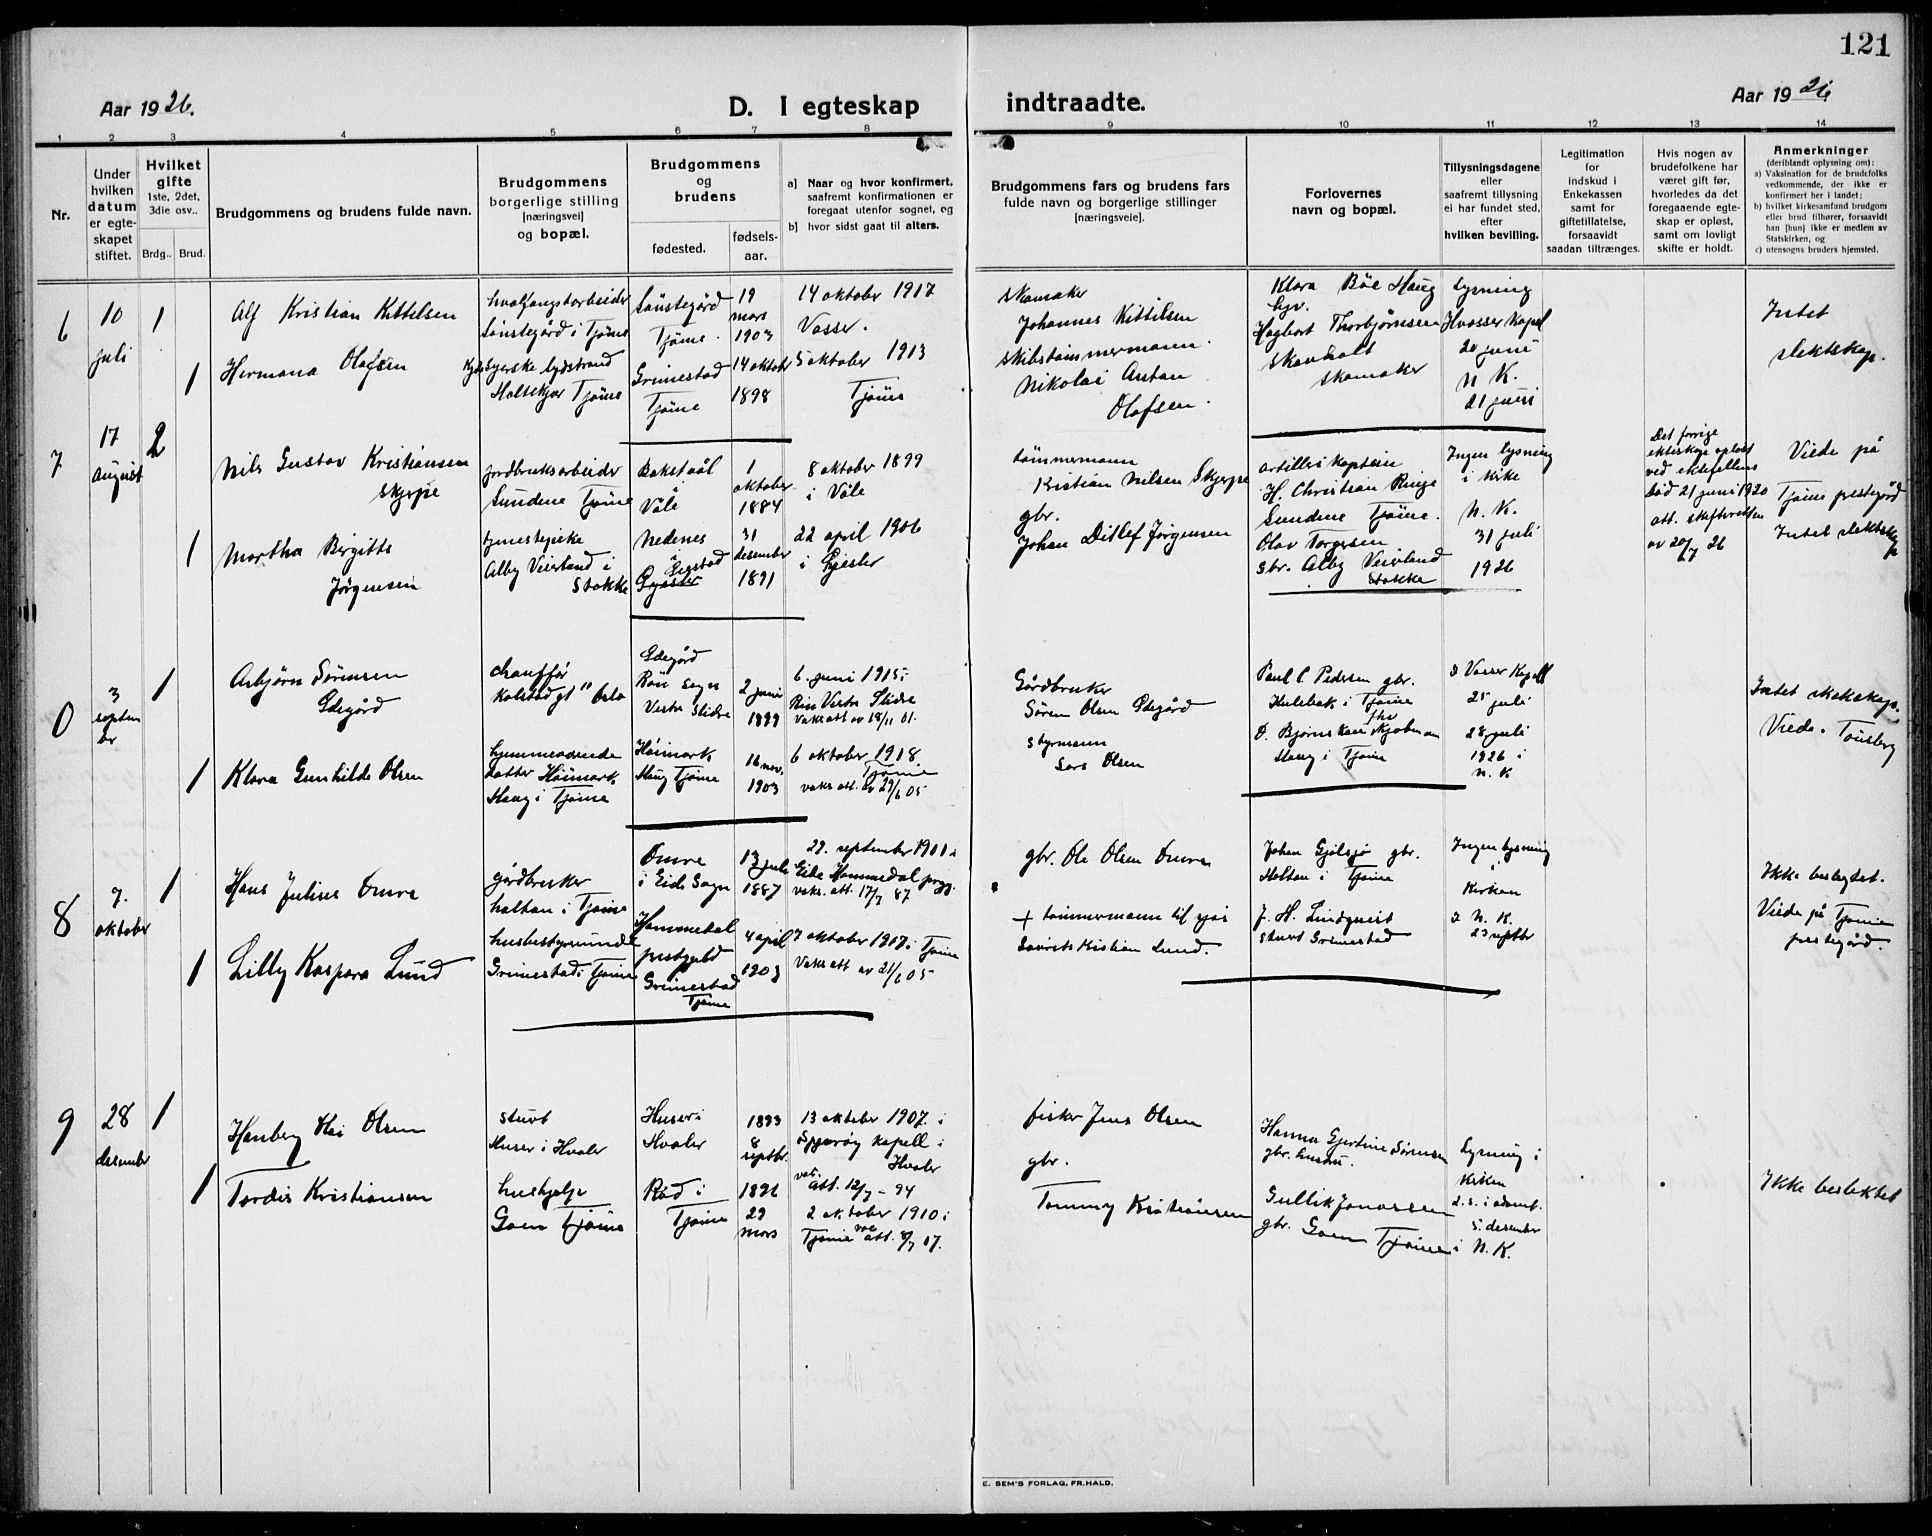 121
Aar 1926.
D. I egteskap
indtraadte.
Aar 1926
1 2 3 4 5 6 7 8 9 10 11 12 13 14
Nr.
Under hvilken datum er egteskapet stiftet.
Hvilket gifte 1ste, 2det, 3die osv..
Brdg.. Brud.
Brudgommens og brudens fulde navn.
Brudgommens borgerlige stilling [næringsvei] og bopæl.
Brudgommens og brudens
fødested.
fødselsaar.
a) Naar og hvor konfirmert, saafremt konfirmationen er foregaat utenfor sognet, og
b) hvor sidst gaat til alters.
Brudgommens fars og brudens fars fulde navn og borgerlige stillinger [næringsveie].
Forlovernes navn og bopæl.
Tillysningsdagene eller saafremt tillysning ei har fundet sted, efter hvilken bevilling.
Legitimation for indskud i Enkekassen samt for giftetillatelse, forsaavidt saadan tiltrænges.
Hvis nogen av brudefolkene har været gift før, hvorledes da det foregaaende egteskap er opløst, samt om lovligt skifte er holdt.
Anmerkninger
(deriblandt oplysning om):
a) Vaksination for de brudefolks vedkommende, der ikke er konfirmert her i landet;
b) hvilket kirkesamfund brudgom eller brud tilhører, forsaavidt han [hun] ikke er medlem av Statskirken, og
c) utensogns bruders hjemsted.
6
10 juli
1
Alf Kristian Kittelsen
hvalfangstarbeider
i Tjøme
Tjøme.
19 mars 1903
14 oktober 1917
Vasser.
skomaker
Johannes Kittilsen
Klara Bøe Haug
Hagbart Thorbjørnsen
Lysning
Hvasser Kapel
20 juni
N. K.
21 juni
Intet slektskap.
1
Hermana Olafsen
syerske
Holtekjær Tjøme
Grimestad
Tjøme
14 oktober 1898
5 oktober 1913
Tjøme
skibstømmermann.
Nikolai Anton
Olafsen.
skomaker
7
17 august
2
Nils Gustav Kristiansen
Skjerpe
jordbruksarbeider
Sundene Tjøme
i Våle
1 oktober 1884
8 oktober 1899
i Våle
tømmermann
Kristian Nilsen Skjerpe
artilleri kaptein
H. Christian Ringe
Sundene Tjøme.
Ingen lysning
i kirke
N. K.
31 juli
1926
Det forrige
ekteskap opløst
ved ektefellens
død 21 juni 1920
att. skifteretten
av 20/7 26
Viede på
Tjøme prestegård
Intet slektskap
1
Martha Birgitte
Jørgensen
tjenestepike
Alby Veierland i
Stokke
Nedenes
31 desember 1891
22 april 1906
gbr.
Johan Ditlef Jørgensen
Olav Torgersen
gbr. Alby Veierland
Stokke
0
3 september
1
Asbjørn Sørensen
Edegård
chauffør
Oslo
Edegård
Røn sogn
Vestre Slidre
2 juni 1899
6. juni 1915 i
Røn Vestre Slidre
Vaks att av 18/11 01.
Gårdbruker
Søren Olsen Edegård
Paul C Pedersen gbr.
i Tjøme
I Vasser Kapell
25 juli
28 juli
1926 i
N. K
Intet slektskap.
Viede i Tønsberg
1
Klara Gunhilda Olsen
hjemmeværende
datter Høimark
Haug i Tjøme
Høimark
Haug Tjøme
16 nov. 1903
6 oktober 1918.
Tjøme
vaks att. av 29/6 05
styrmann
Lars Olsen
Haug i Tjøme
8
7. oktober
1
Hans Julius Omre
gårdbruker
Holtan i Tjøme
Omre
i Eide Sogn
Hommedal
prestegjeld
13 juli 1887
29. september 1901 i
Eide Hommedal prgj.
vaks. att. 17/7 87
gbr. Ole Olsen Omre
Johan Gjølsjø gbr.
Holtan i Tjøme
Ingen lysning
i
Kirken
I N. K.
23 septbr
Ikke beslegtet.
Viede på Tjøme
prestegård.
1
Lilly Kaspara Lund
husbestyrerinde
Grimestad i Tjøme
Grimestad
Tjøme
4 april 1903
7 oktober 1917 i Tjøme
Vaks att av 21/6 05
+ tømmermann til sjøs
Kristian Lund.
J. H. Lindquist
stuert Grimestad
9
28 desember
1
Olsen
stuert
Huser i Hvaler
Huser i
Hvaler
1893
8 septbr.
13 oktober 1907 i
Spjærøy kapell i
Hvaler
att. 12/7 - 94
fisker Jens Olsen
Hanna Gjertine Sørensen
gbr. hustru.
Lysning i
kirken
2. s. i advent.
5. desember
i N. K.
Ikke beslektet
1
Tordis Kristiansen
hushjelp
Goen Tjøme
Rød i
Tjøme
1896
29 mars
2 oktober 1910 i
Tjøme vac att. 8/7 07.
gbr.
Tommy Kristiansen
Gullik Jonassen
gbr. Goen Tjøme
E. SEM'S FORLAG, FR.HALD.